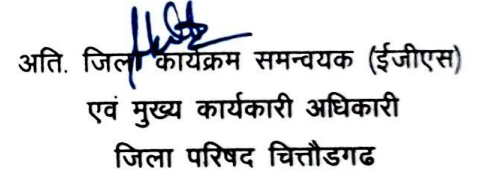 अति. जिला कार्यक्रम समन्वयक (ईजीएस)
एवं मुख्य कार्यकारी अधिकारी
जिला परिषद चित्तौडगढ